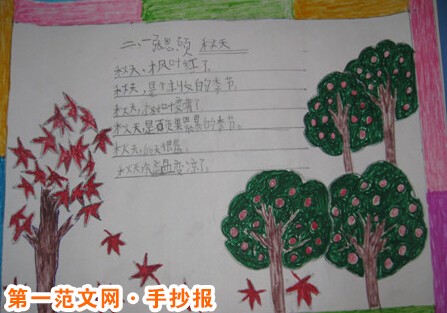 二、一张 秋天
秋天,枫叶红了
秋天,是个丰收的季节
秋天,树叶变黄了
秋天,是百果累累的季节。
秋天,天很蓝
秋天 变凉了
第一范文网·手抄报